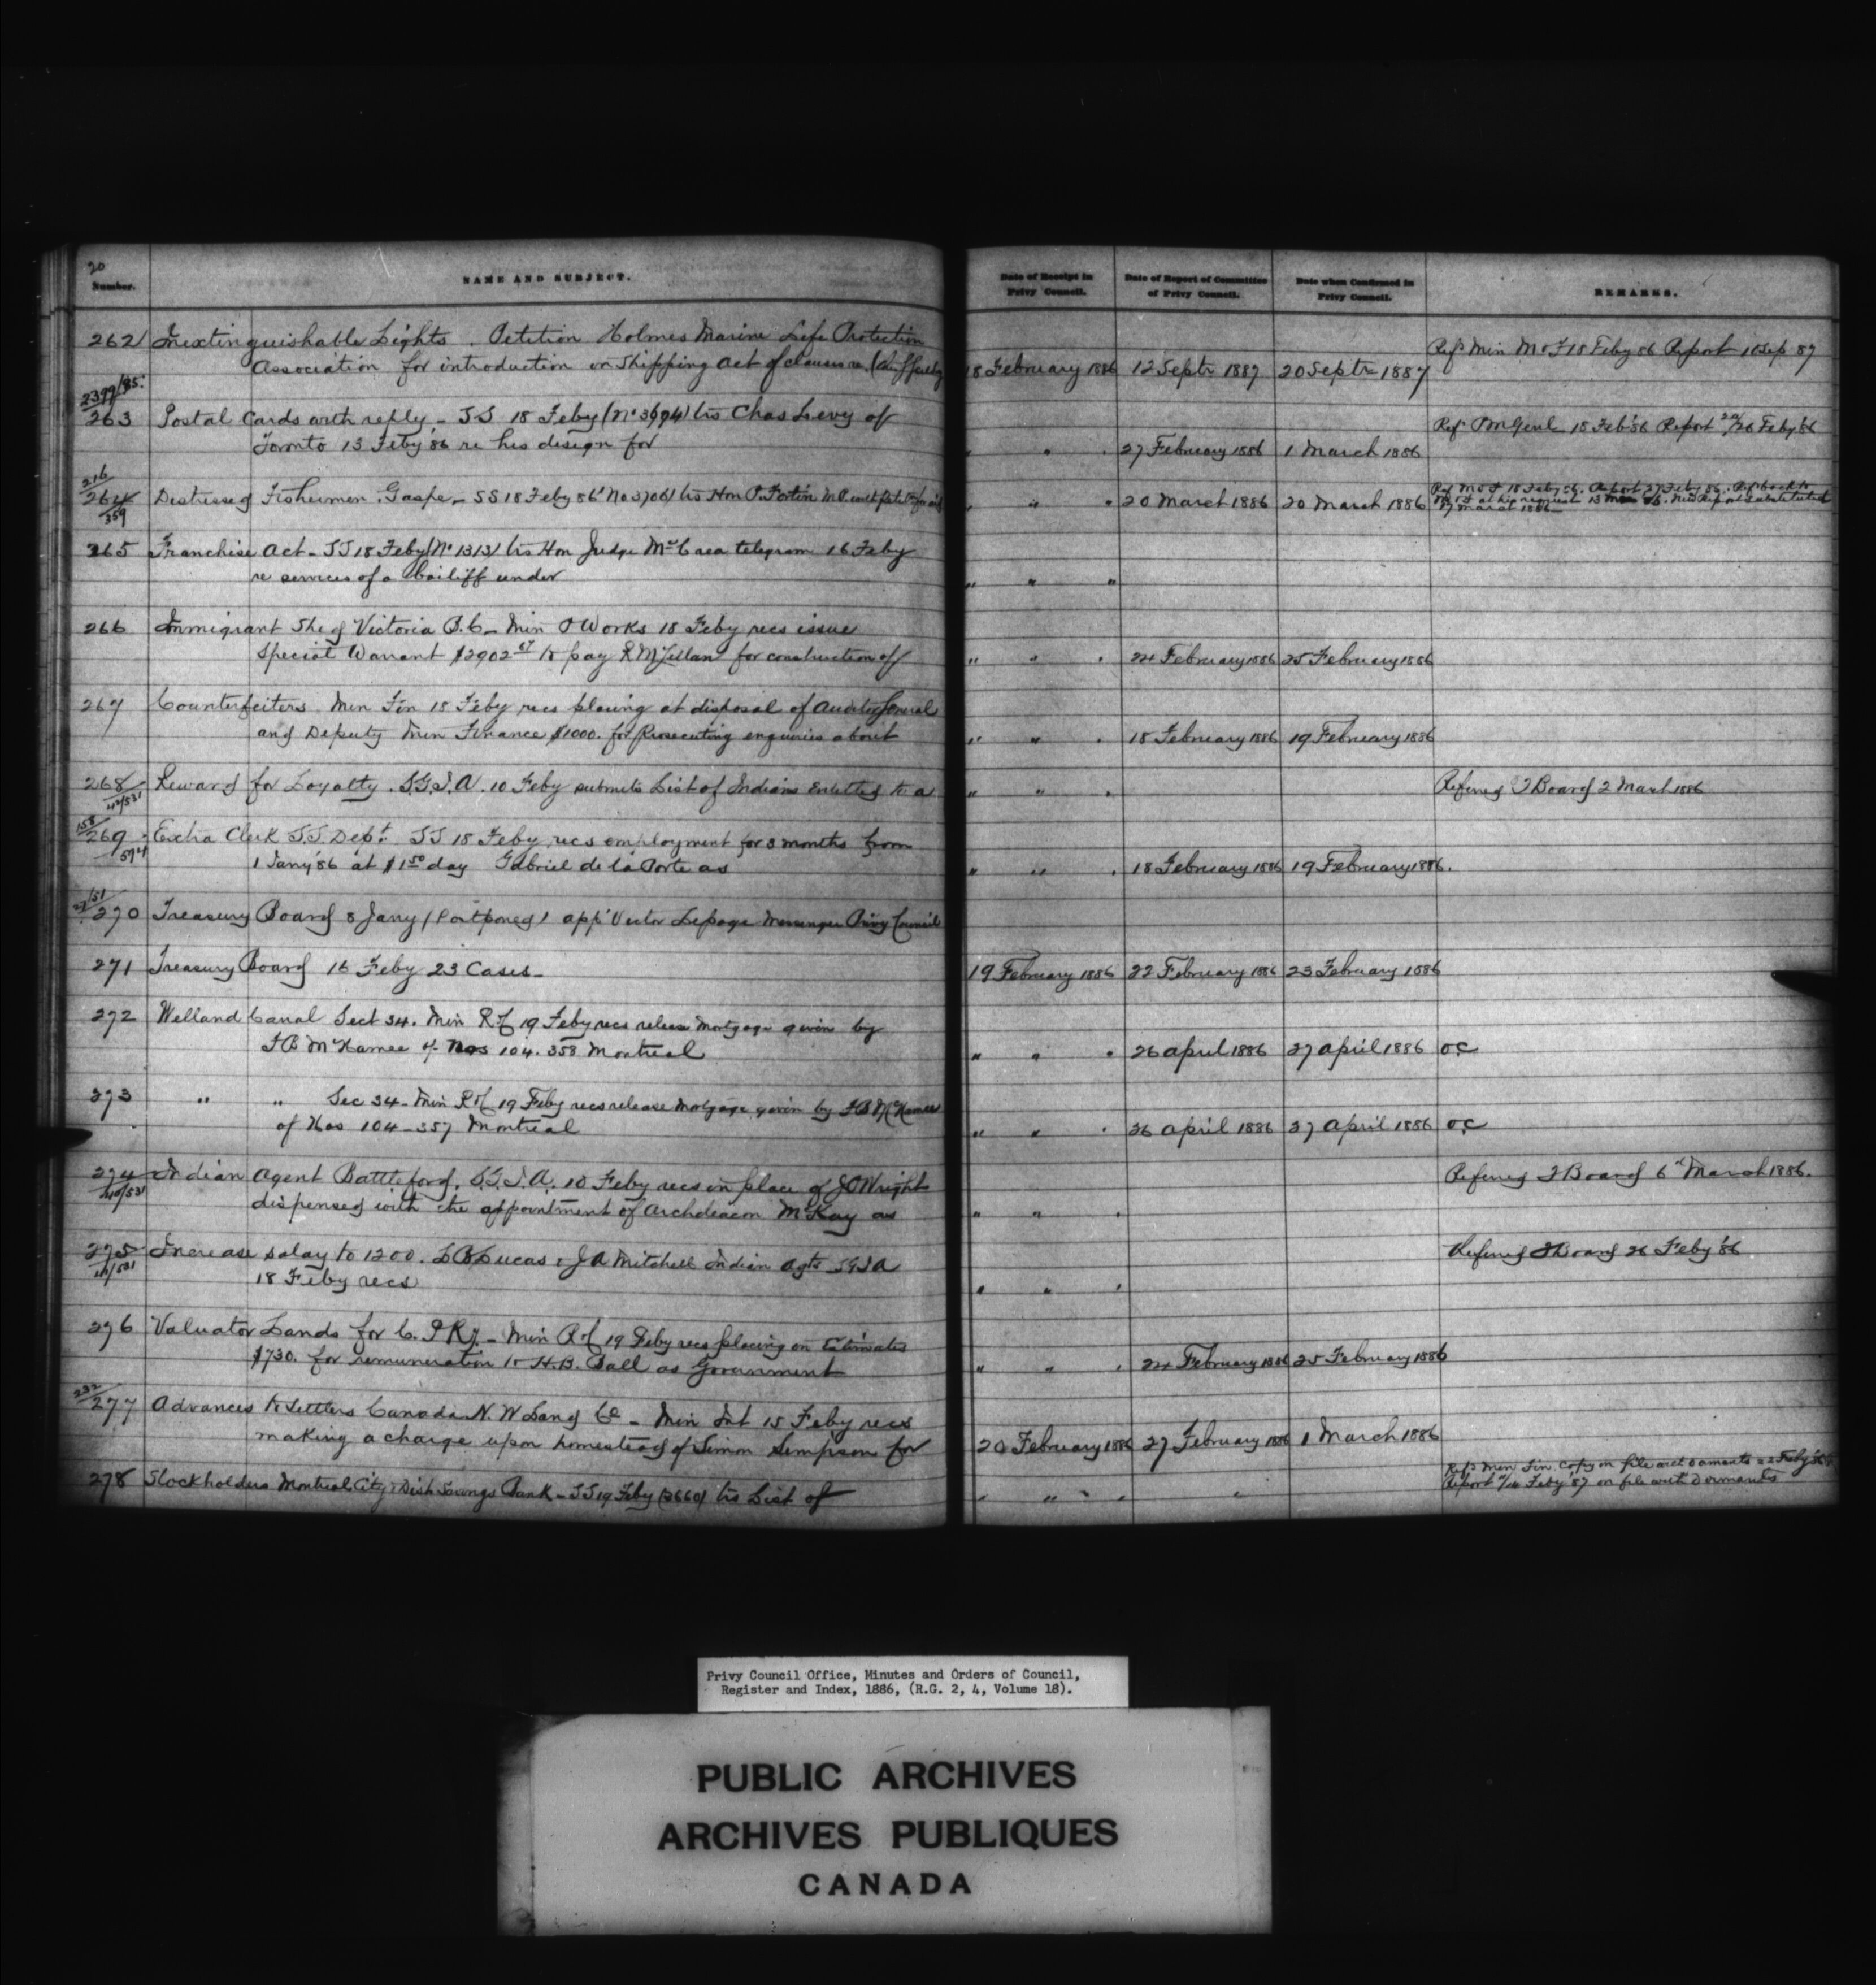 20
Number. NAME AND SUBJECT. Date of Receipt in Privy Council. Date of Report of Committee of Privy Council. Date when Confirmed in Privy Council. REMARKS.
262 Inextinguishable Lights. Petition Holmes Marine Life Protection
Association for introduction in Shipping Act of clauses re 18 February 1886 12 Septr 1887 20 Septr 1887 Refd Min M & F 18 Feby 86 Report 10 Sep 87
2399/85
263 Postal Cards with reply - SS 18 Feby (No 3694) trs Chas Levy of
Toronto 13 Feby '86 re his design for " " " 27 February 1886 1 March 1886 Refd PMGenl 18 Feb '86 Report 26 Feby 86
216
264 Distressed Fishermen, Gaspe - SS 18 Feby 86 No 3706 trs Hon P. Fortin M.P. " " " 20 March 1886 20 March 1886 Ref M & F 18 Feby 86. Report 27 Feby 86. Refd back to
M & F at his request 13 Mar 86. New Report substituted
359 17 March 1886
265 Franchise Act - SS 18 Feby (No 1313) trs Hon Judge McCrea telegram 16 Feby
re services of a bailiff under " " "
266 Immigrant Shed Victoria B.C. - Min P Works 18 Feby recs issue
Special Warrant $2902 67 to pay R McLellan for construction of " " " 24 February 1886 25 February 1886
267 Counterfeiters Min Fin 18 Feby recs placing at disposal of Auditor General
and Deputy Min Finance $1000. for Prosecuting enquiries about " " " 18 February 1886 19 February 1886
268 Reward for Loyalty. S.G.I.A. 10 Feby submits List of Indians Entitled to a " " " Referred T Board 2 March 1886
40/531
158
269 Extra Clerk S.S. Dept. SS 18 Feby recs employment for 3 months from
594
1 Jany '86 at $1 50 day Gabriel de la Porte as " " " 18 February 1886 19 February 1886.
270 Treasury Board 8 Jany (Postponed) app Victor Lepage Messenger Privy Council
271 Treasury Board 16 Feby 23 Cases - 19 February 1886 22 February 1886 23 February 1886
272 Welland Canal Sect 34. Min R & C 19 Feby recs release mortgage given by
F B McNamee of Nos 104.358 Montreal " " " 26 April 1886 27 April 1886 O.C
273 " " Sec 34 - Min R & C 19 Feby recs release mortgage given by F B McNamee
of Nos 104-357 Montreal " " " 26 April 1886 27 April 1886 O.C
274 Indian Agent Battleford. S.G.I.A. 10 Feby recs in place of J O Wright Referred T Board 6th March 1886.
40/531
dispensed with the appointment of Archdeacon McKay as " " "
275 Increase salary to 1200. Lucas & J A Mitchell Indian Agts SGIA Referred T Board 26 Feby '86
18 Feby recs " " "
276 Valuator Lands for C.P.Ry. - Min R & C 19 Feby recs placing on Estimates
$730. for remuneration to H.B. Ball as Government " " " 24 February 1886 25 February 1886
232
277 Advances to Settlers Canada N.W Land Co - Min Int 15 Feby recs
making a charge upon homestead of Simon Simpson for 20 February 1886 27 February 1886 1 March 1886
278 Stockholders Montreal City & Dist Savings Bank - SS 19 Feby (3660) trs List of " " " Refd Min Fin. Copy on file with Dormants
Report Feby '87 on file with Dormants
Privy Council Office, Minutes and Orders of Council,
Register and Index, 1886, (R.G. 2, 4, Volume 18).
PUBLIC ARCHIVES
ARCHIVES PUBLIQUES
CANADA